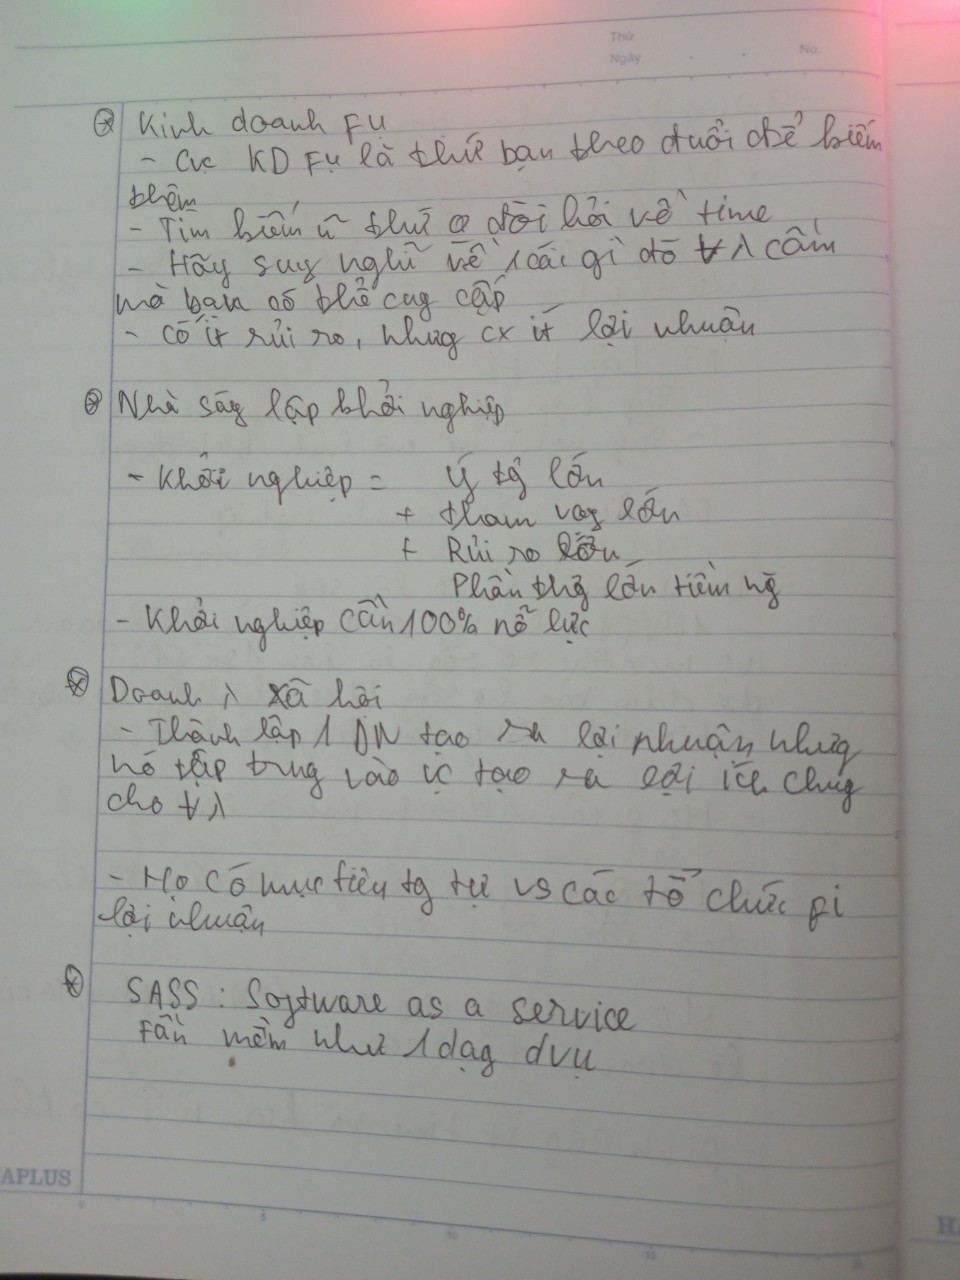 Thứ
Ngày . . No.
Kinh doanh Fụ
- Cục KD Fụ là thứ bạn theo đuổi để kiếm
thêm
- Tìm kiếm ~ thứ o đòi hỏi về time
- Hãy suy nghĩ về 1 cái gì đó ∀ λ cần
mà bạn có thể cug cấp
- Có ít rủi ro, nhưg cx ít lợi nhuận
Nhàság lập khởi nghiệp
- Khởi nghiệp = Ý tg lớn
+ tham vọg lớn
+ Rủi ro lớn
Phần thg lớn tiềm ng
- Khởi nghiệp cần 100% nỗ lực
Doanh λ xã hội
- Thành lập 1 DN tạo ra lợi nhuận nhưg
nó tập trug vào tạo ra lợi ích chug
cho ∀ λ
- Họ có mục tiêu tg tự vs các tổ chức fi
lợi nhuận
SASS: Software as a service
Fần mềm như 1 dạg dvụ
APLUS
HA